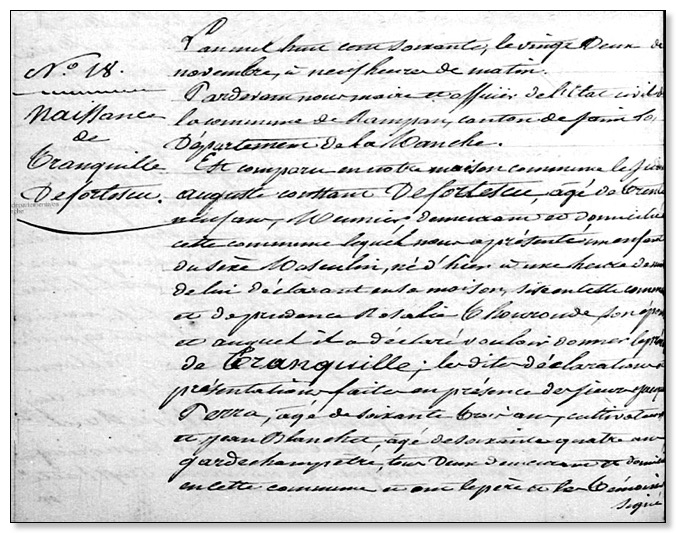 N.° 18.
Naissance
de
Tranquille
Defortescu.
L'an mil huit cent soixante, le vingt deux de
novembre, à neuf heures de matin.
Pardevant nous maire et officier de l'état civil de
la commune de Rampan, canton de Saint Lo,
Département de la Manche.
Est comparu en notre maison commune le sieur
auguste constant Defortescu, agé de trente
neuf ans, Meunier, demeurant et domicilié
cette commune lequel nous a présenté un enfant
du sexe Masculin, né d'hier à une heure de
de lui déclarant en sa maison, sise en cette commune
et de prudence Rosalie Thouroude, son épouse
et auquel il a déclaré vouloir donner le prénom
de Tranquille; les dites déclaration &
présentation faites en présence des sieurs jacques
Perra, agé de soixante trois ans, cultivateur
et jean Blanchet, agé de soixante quatre ans
garde champêtre, tous deux demeurant et domiciliés
en cette commune et ont le père et les témoins
signé